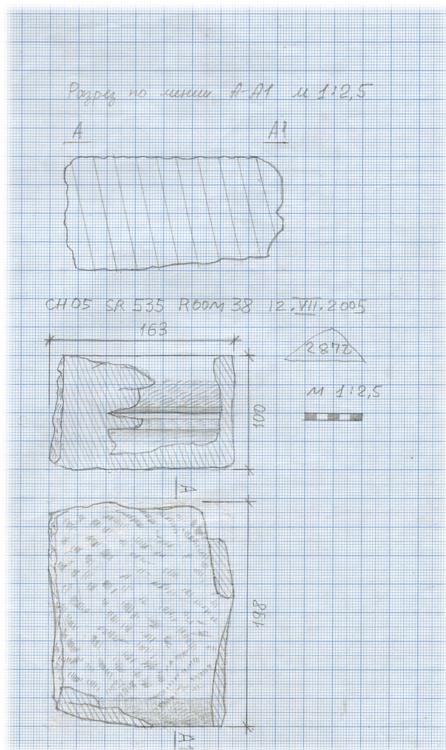 Разрез по линии А-А1 м 1:2,5
А А1
CH05 SR 535 ROOM 38 12.VII.2005
163
2872
М 1:2,5
100
А
198
А1